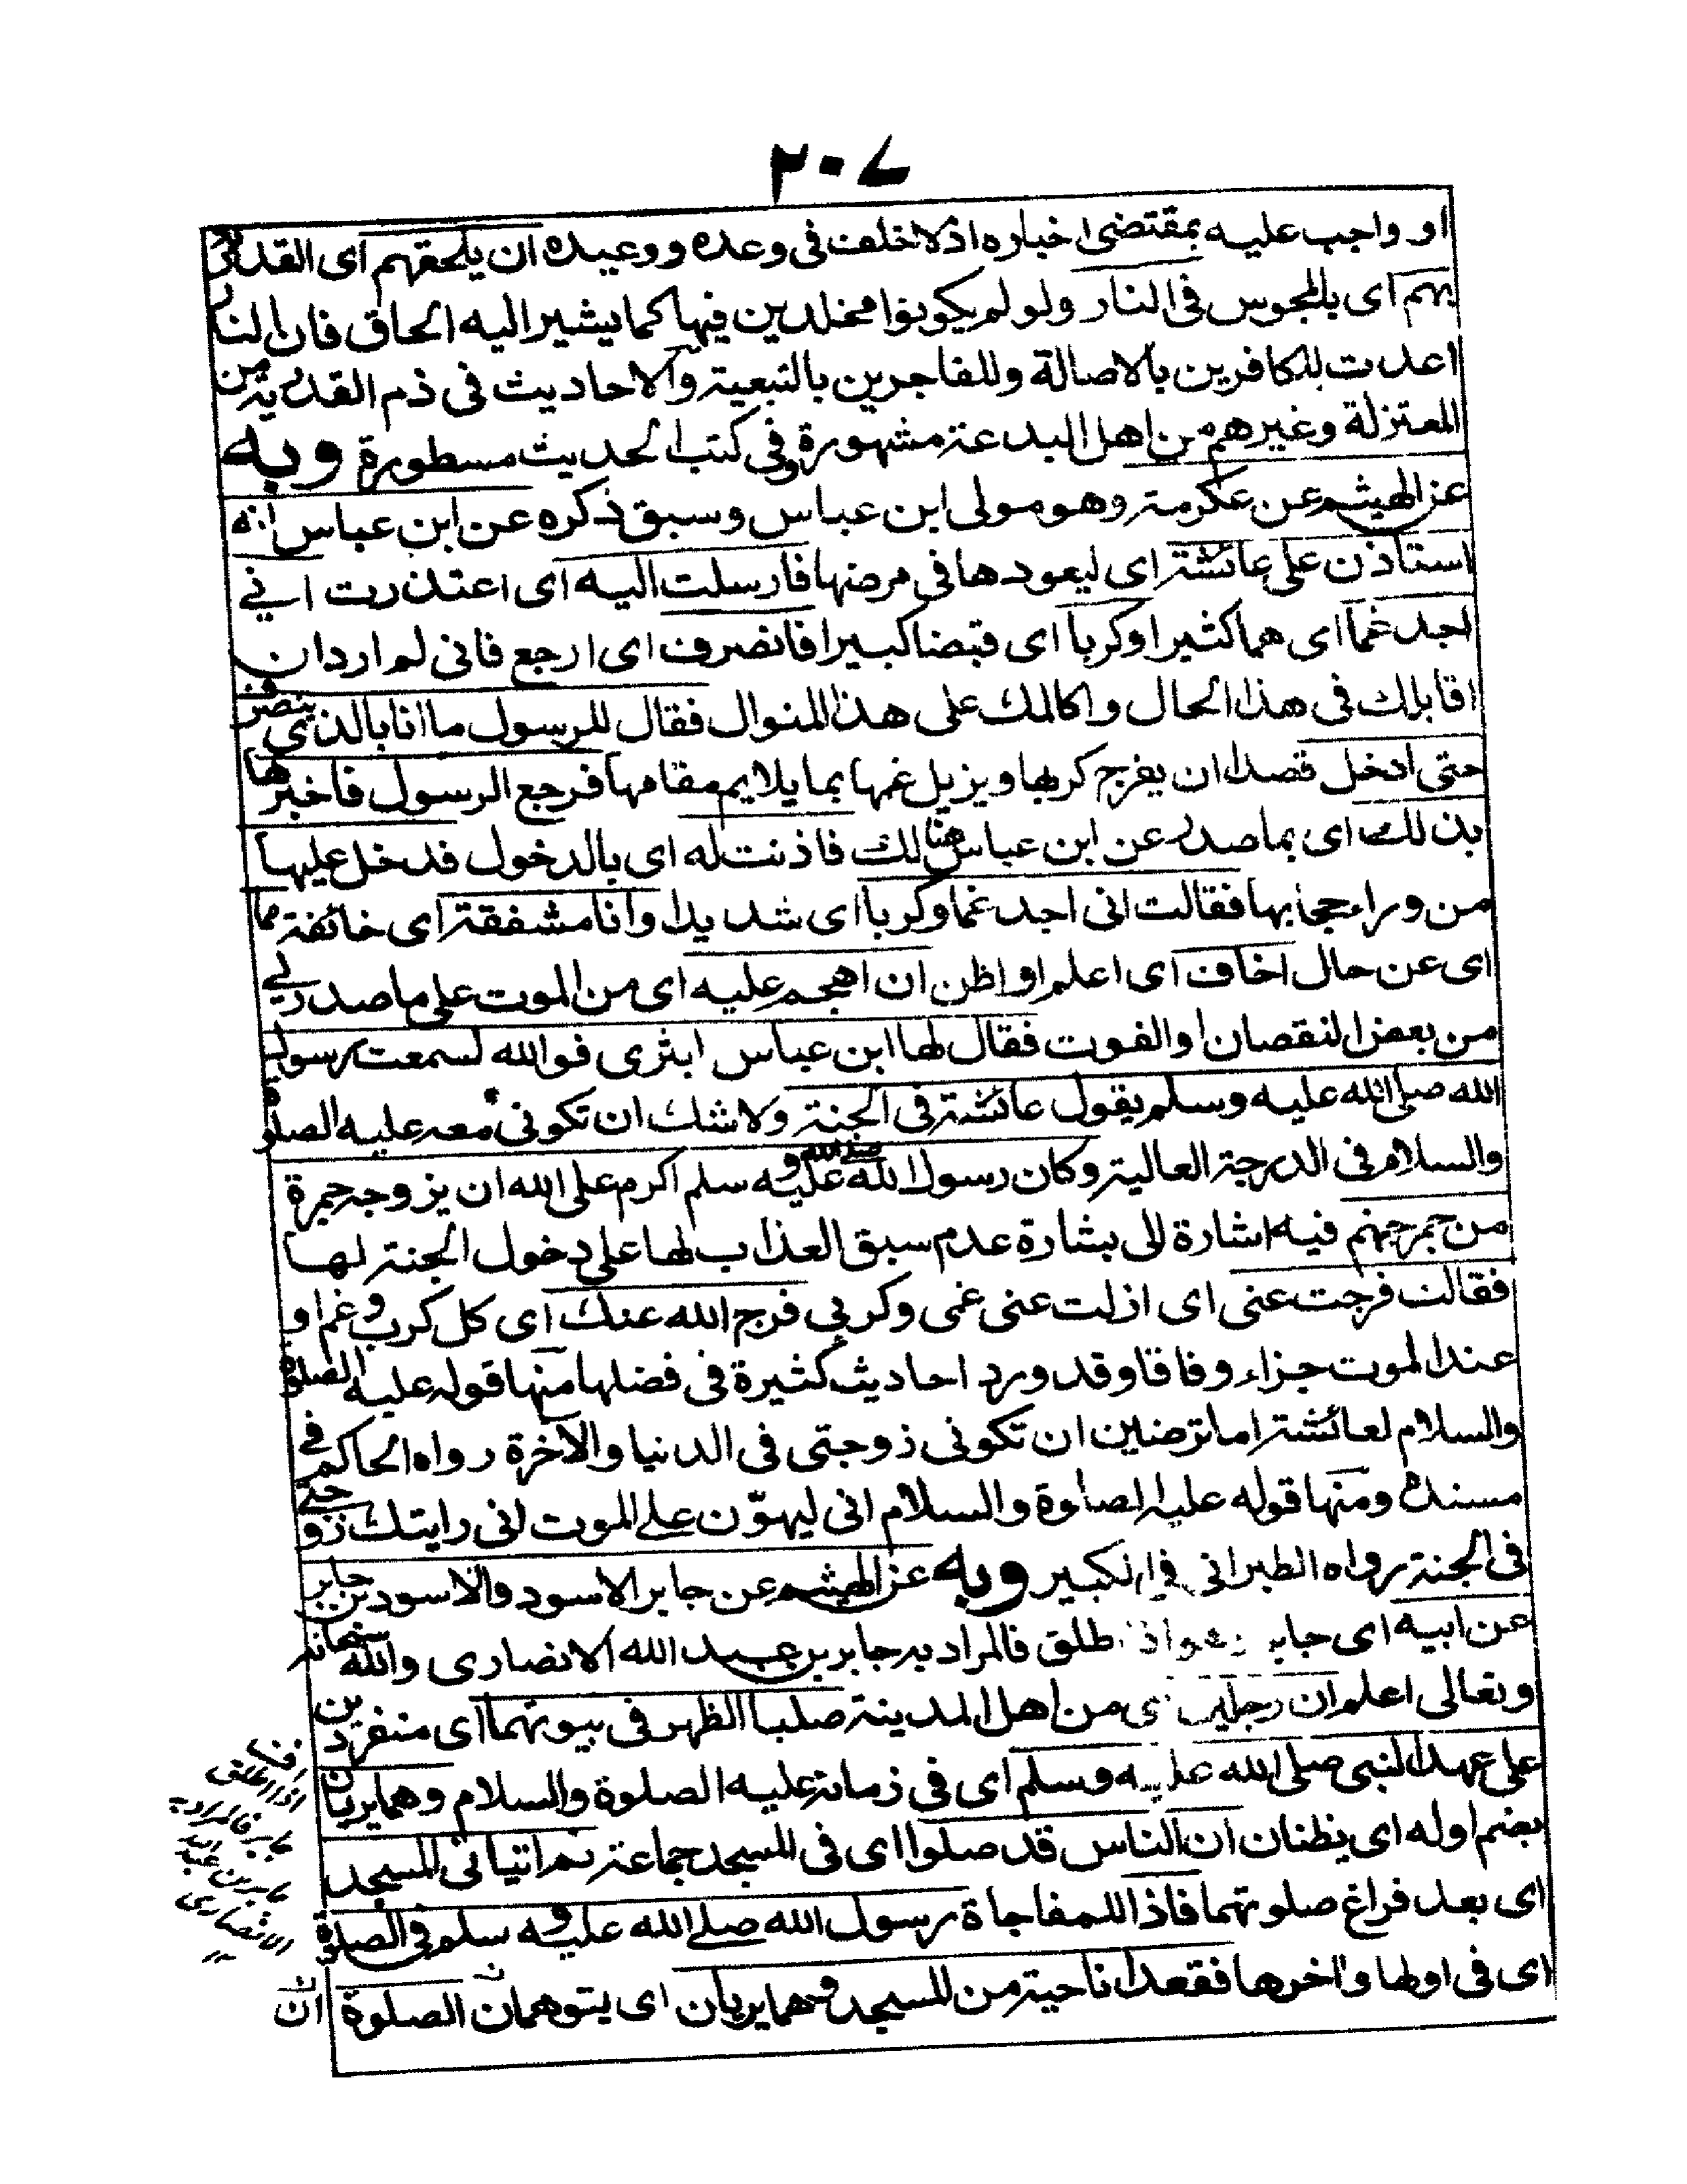 ٢٠٧
او واجب عليه بمقتضى اخباره اذ لا خلف فى وعده ووعيده ان يلحقهم اى القدرية
بهم اى بالمجوس فى النار ولو لم يكونوا مخلدين فيها كما يشير اليه الحاق فان النار
اعدت للكافرين بالاصالة وللفاجرين بالتبعية والاحاديث فى ذم القدرية من
المعتزلة وغيرهم من اهل البدعة مشهورة وفى كتب الحديث مسطورة وبه
عن الهيثم عن عكرمة وهو مولى ابن عباس وسبق ذكره عن ابن عباس انه
استاذن على عائشة اى ليعودها فى مرضها فارسلت اليه اى اعتذرت انى
اجد غما اى هما كثيرا وكربا اى قبضا كبيرا فانصرف اى ارجع فانى لم ارد ان
اقابلك فى هذا الحال واكالمك على هذا المنوال فقال للرسول ما انا بالذى ينصرف
حتى ادخل قصدا ان يفرج كربها ويزيل غمها بما يلايم مقامها فرجع الرسول فاخبرها
بذلك اى بما صدر عن ابن عباس هنالك فاذنت له اى بالدخول فدخل عليها
من وراء حجابها فقالت انى اجد غما وكربا اى شديدا وانا مشفقة اى خائفة مما
اى عن حال اخاف اى اعلم او اظن ان اهجم عليه اى من الموت على ما صدر لى
من بعض النقصان والفوت فقال لها ابن عباس ابشرى فوالله لسمعت رسول
الله صلى الله عليه وسلم يقول عائشة فى الجنة ولا شك ان تكونى معه عليه الصلوة
والسلام فى الدرجة العالية وكان رسول الله صلى الله عليه وسلم اكرم على الله ان يزوجه جمرة
من جمر جهنم فيه اشارة الى بشارة عدم سبق العذاب لها على دخول الجنة لها
فقالت فرجت عنى اى ازلت عنى غمى وكربى فرج الله عنك اى كل كرب وغم او
عند الموت جزاء وفاقا وقد ورد احاديث كثيرة فى فضلها منها قوله عليه الصلوة
والسلام لعائشة اما ترضين ان تكونى زوجتى فى الدنيا والآخرة رواه الحاكم فى
مسنده ومنها قوله عليه الصلوة والسلام انى ليهوّن على الموت انى رايتك زوجتى
فى الجنة رواه الطبرانى فى الكبير وبه عن الهيثم عن جابر الاسود والاسود بن جابر
عن ابيه اى جابر طلق فالمراد به جابر بن عبد الله الانصارى والله سبحانه
وتعالى اعلم ان رجلين اى من اهل المدينة صليا الظهر فى بيوتهما اى منفردين
على عهد النبى صلى الله عليه وسلم اى فى زمانه عليه الصلوة والسلام وهما يريان
بضم اوله اى يظنان ان الناس قد صلوا اى فى المسجد جماعة ثم اتيا اى المسجد
اى بعد فراغ صلوتهما فاذا للمفاجاة رسول الله صلى الله عليه وسلم فى الصلوة
اى فى اولها واخرها فقعدا ناحية من المسجد وهما يريان اى يتوهمان الصلوة
ان
اذا اطلق
جابر فالمراد به
جابر بن عبد الله
الانصارى